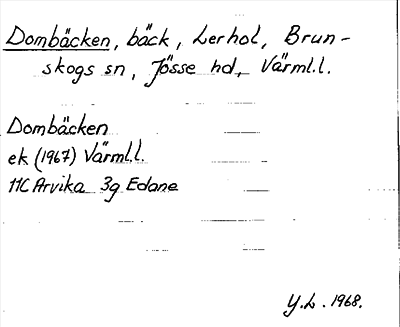 Dombäcken, bäck, Lerhol, Brun-
skogs sn, Jösse hd, Värml.l.
Dombäcken
ek (1967) Värml.l.
11C Arvika 3g Edane
Y.L. 1968.